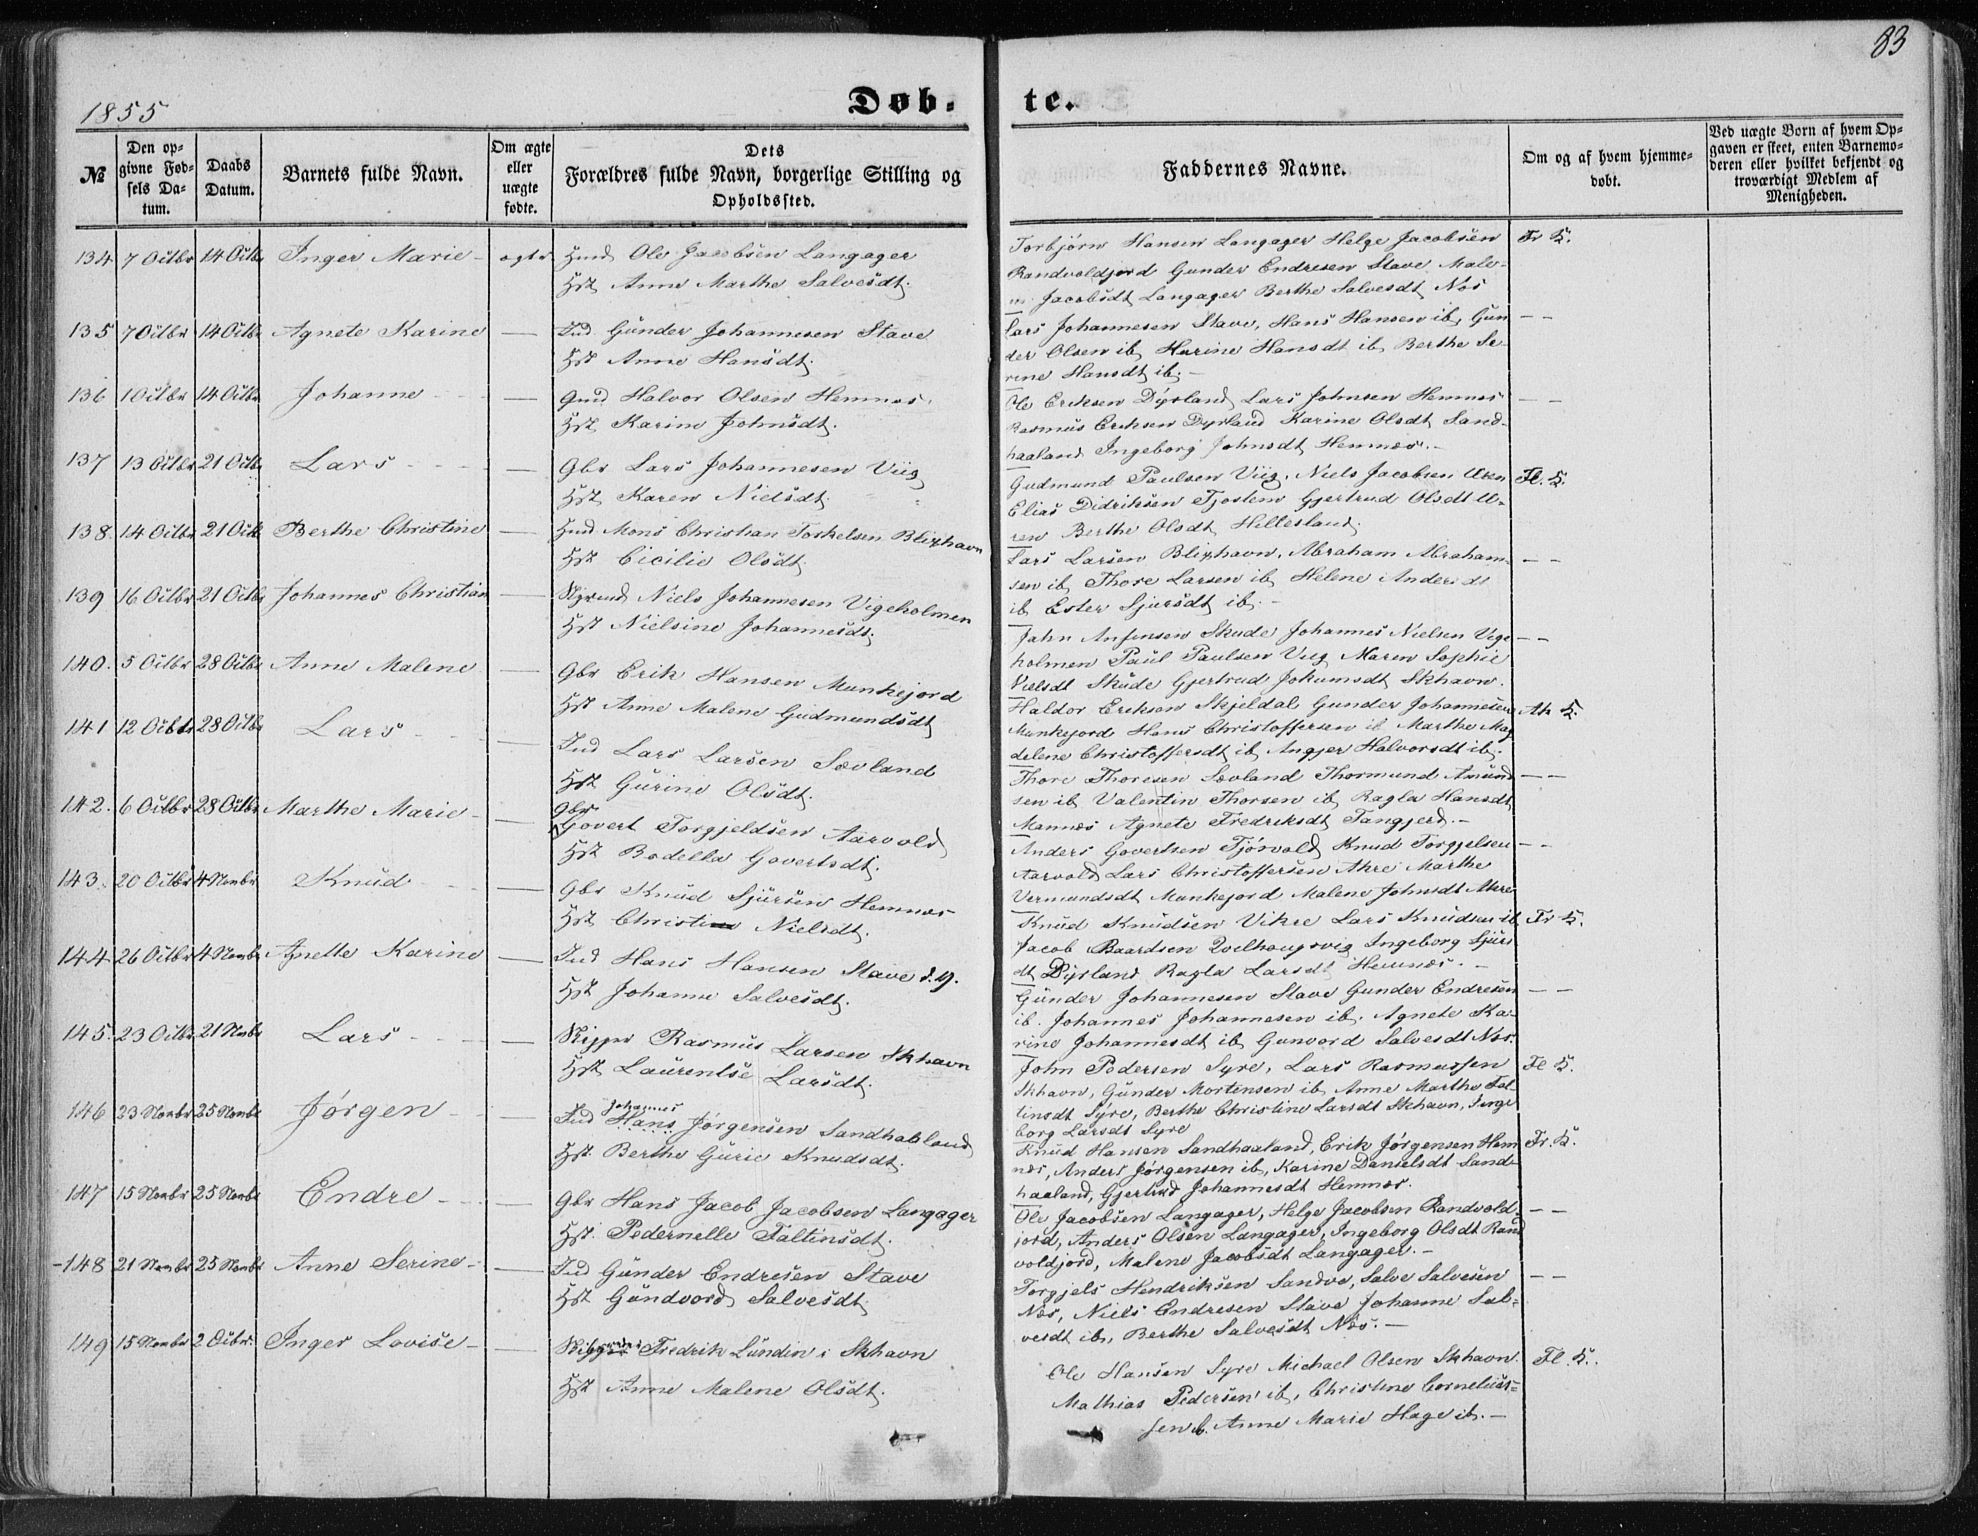 83
1855
Døb.
te.
№
Den op-
givne Fød-
sels Da-
tum.
Daabs
Datum.
Barnets fulde Navn.
Om ægte
eller
uægte
fødte.
Dets
Forældres fulde Navn, borgerlige Stilling og
Opholdssted.
Faddernes Navne.
Om og af hvem hjemme-
døbt.
Ved uægte Børn af hvem Op-
gaven er skeet, enten Barnemo-
deren eller hvilket bekjendt og
troværdigt Medlem af
Menigheden.
134 7 Octbr 14 Octbr Inger Marie - ægte Hmd Ole Jacobsen Langager
Hst Anne Marthe Salvesdt.
Torbjørn Hansen Langager Helge Jacobsen Fr K.
Randvoldjord Gunder Endresen Stave Male-
ne Jacobsdt Langager Berthe Salvesdt Nøs
135 7 Octbr 14 Octbr Agnete Karine — Ind Gunder Johannesen Stave
Hst Anne Hansdt.
Lars Johannesen Stave, Hans Hansen ib, Gun - -
der Olsen ib, Karine Hansdt ib, Berthe Se-
rine Hansdt ib. -
136 1 Octbr 14 Octbr Johanne — Gmd Halvor Olsen Hemnes.
Hst Karine Johnsdt.
Ole Eriksen Dyrland, Lars Johnsen Hemnes - -
Rasmus Eriksen Dyrland Karine Olsdt Sand-
haaland Ingeborg Johnsdt Hemnes. -
137 13 Octbr 21 Octbr Lars — Gbr Lars Johannesen Viig
Hst Karen Nielsdt.
Gudmund Paulsen Viig, Niels Jacobsen Uren Fl. K.
Elias Didriksen Tjoslem Gjertrud Olsdt U-
ren Berthe Olsdt Hillesland.
138. 14 Octbr 21 Octbr Berthe Christine — Hmd Mons Christian Torkelsen Blixhavn
Hst Cicilie Olsdt.
Lars Larsen Blixhavn, Abraham Abraham- - -
sen ib, Thore Larsen ib, Helene Andersdt
ib, Ester Sjursdt ib. -
139 16 Octbr 21 Octbr Johannes Christian — Niels Johannesen Vigeholmen
Hst Nielsine Johannesdt.
Jahn Anfensen Skude Johannes Nielsen Vige - -
holmen Paul Paulsen Viig Maren Sophie
Nielsdt Skude Gjertrud Jokumsdt Skhavn.
140. 5 Octbr 28 Octbr Anne Malene — Gbr Erik Hansen Munkejord
Hst Anne Malene Gudmundsdt
Haldor Eriksen Skjeldal Gunder Johannesen Ak K.
Munkejord Hans Christoffersen ib Marthe Mag
delene Christoffersdt ib, Angjer Halvorsdt ib.
141 12 Octbr 28 Octbr Lars — Ind Lars Larsen Sævland
Hst Gurine Olsdt.
Thore Thoresen Sævland Thormund Amund - -
sen ib, Valentin Thorsen ib, Ragla Hansdt
Mannes Agnete Fredriksdt Tangjerd. -
142. 6 Octbr 28 Octbr Marthe Marie - — Gbr
Govert Torgjeldsen Aarvold
Hst Bodella Govertsdt.
Anders Govertsen Tjørvold, Knud Torgjelsen - -
Aarvold Lars Christoffersen Akre Marthe
Vermundsdt Munkejord Malene Johnsdt Akre
143. 20 Octbr 4 Novbr Knud — Gbr Knud Sjursen Hemnes
Hst Christine Nielsdt.
Knud Knudsen Vikre Lars Knudsen ib Fr K.
Jacob Baardsen Ingeborg Sjurs
dt Dyrland Ragla Larsdt Hemnes. -
144 26 Octbr 4 Novbr Agnette Karine — Ind Hans Hansen Stave d. y.
Hst Johanne Salvesdt.
Gunder Johannesen Stave Gunder Endresen - -
ib. Johannes Johannesen ib. Agnete Ka-
rine Johannesdt ib, Gunvord Salvesdt Nøs.
145. 23 Octbr 21 Novbr Lars — Skipper Rasmus Larsen Skhavn
Hst Laurentse Larsdt.
John Pedersen Syre, Lars Rasmussen Fl K.
Skhavn, Gunder Mortensen ib, Anne Marthe Fal-
tinsdt Syre, Berthe Christine Larsdt Skhavn, Inge
borg Larsdt Syre
146 23 Novbr 25 Novbr Jørgen — Johannes
Ind Hans Jørgensen Sandhaaland
Hst Berthe Gurie Knudsdt.
Knud Hansen Sandhaaland, Erik Jørgensen Hem Fr. K.
nes, Anders Jørgensen ib, Karine Danielsdt Sand-
haaland, Gjertrud Johannesdt Hemnes.
147 15 Novbr 25 Novbr Endre — Gbr Hans Jacob Jacobsen Langager
Hst. Pedernelle Faltinsdt.
Ole Jacobsen Langager, Helge Jacobsen Randvold- - -
jord, Anders Olsen Langager, Ingeborg Olsdt Rand
voldjord, Malene Jacobsdt Langager. -
148 21 Novbr 25 Novbr Anne Serine - — Ind Gunder Endresen Stave
Hst Gundvord Salvesdt.
Torgjels Hendriksen Sandve, Salve Salvesen - -
Nøs, Niels Endresen Stave Johanne Sal-
vesdt ib, Berthe Salvesdt Nøs. -
149 15 Novbr 2 Inger Lovise - — Fredrik Lundin i Skhavn
Hst Anne Malene Olsdt.
Ole Hansen Syre Michael Olsen Skhavn. Fl. K.
Mathias Pedersen ib, Christine Cornelius-
sen ib. Anne Marie Hage ib. -